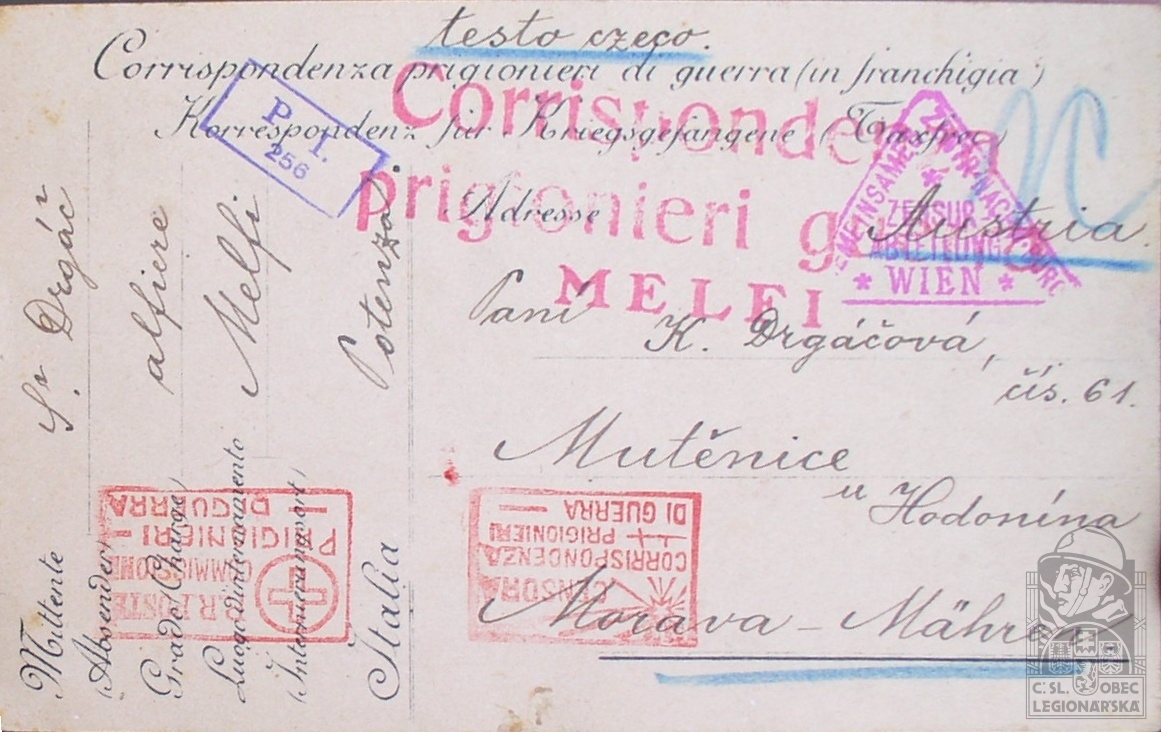 testo czeco.
Corrispondenza prigionieri di guerra (in franchigia)
Korrespondenz für Kriegsgefangene (Taxfrei)
P. I.
256
Corrispondenza
prigionieri
MELFI
ZENSUR
ABTEILUNG
* WIEN *
Adresse
Austria.
Paní
K. Drgáčová,
čís. 61.
Mutěnice
u Hodonína
Morava - Mähren
Mittente
(Absender)
Drgáč
Grado (Charge)
alfiere
Luogo d'internamento
(Internierungsort)
Melfi
Potenza
Italia
COMMISSIONE
PRIGIONIERI
DI GUERRA
CENSURA
CORRISPONDENZA
PRIGIONIERI
DI GUERRA
Č. SL. OBEC
LEGIONÁŘSKÁ